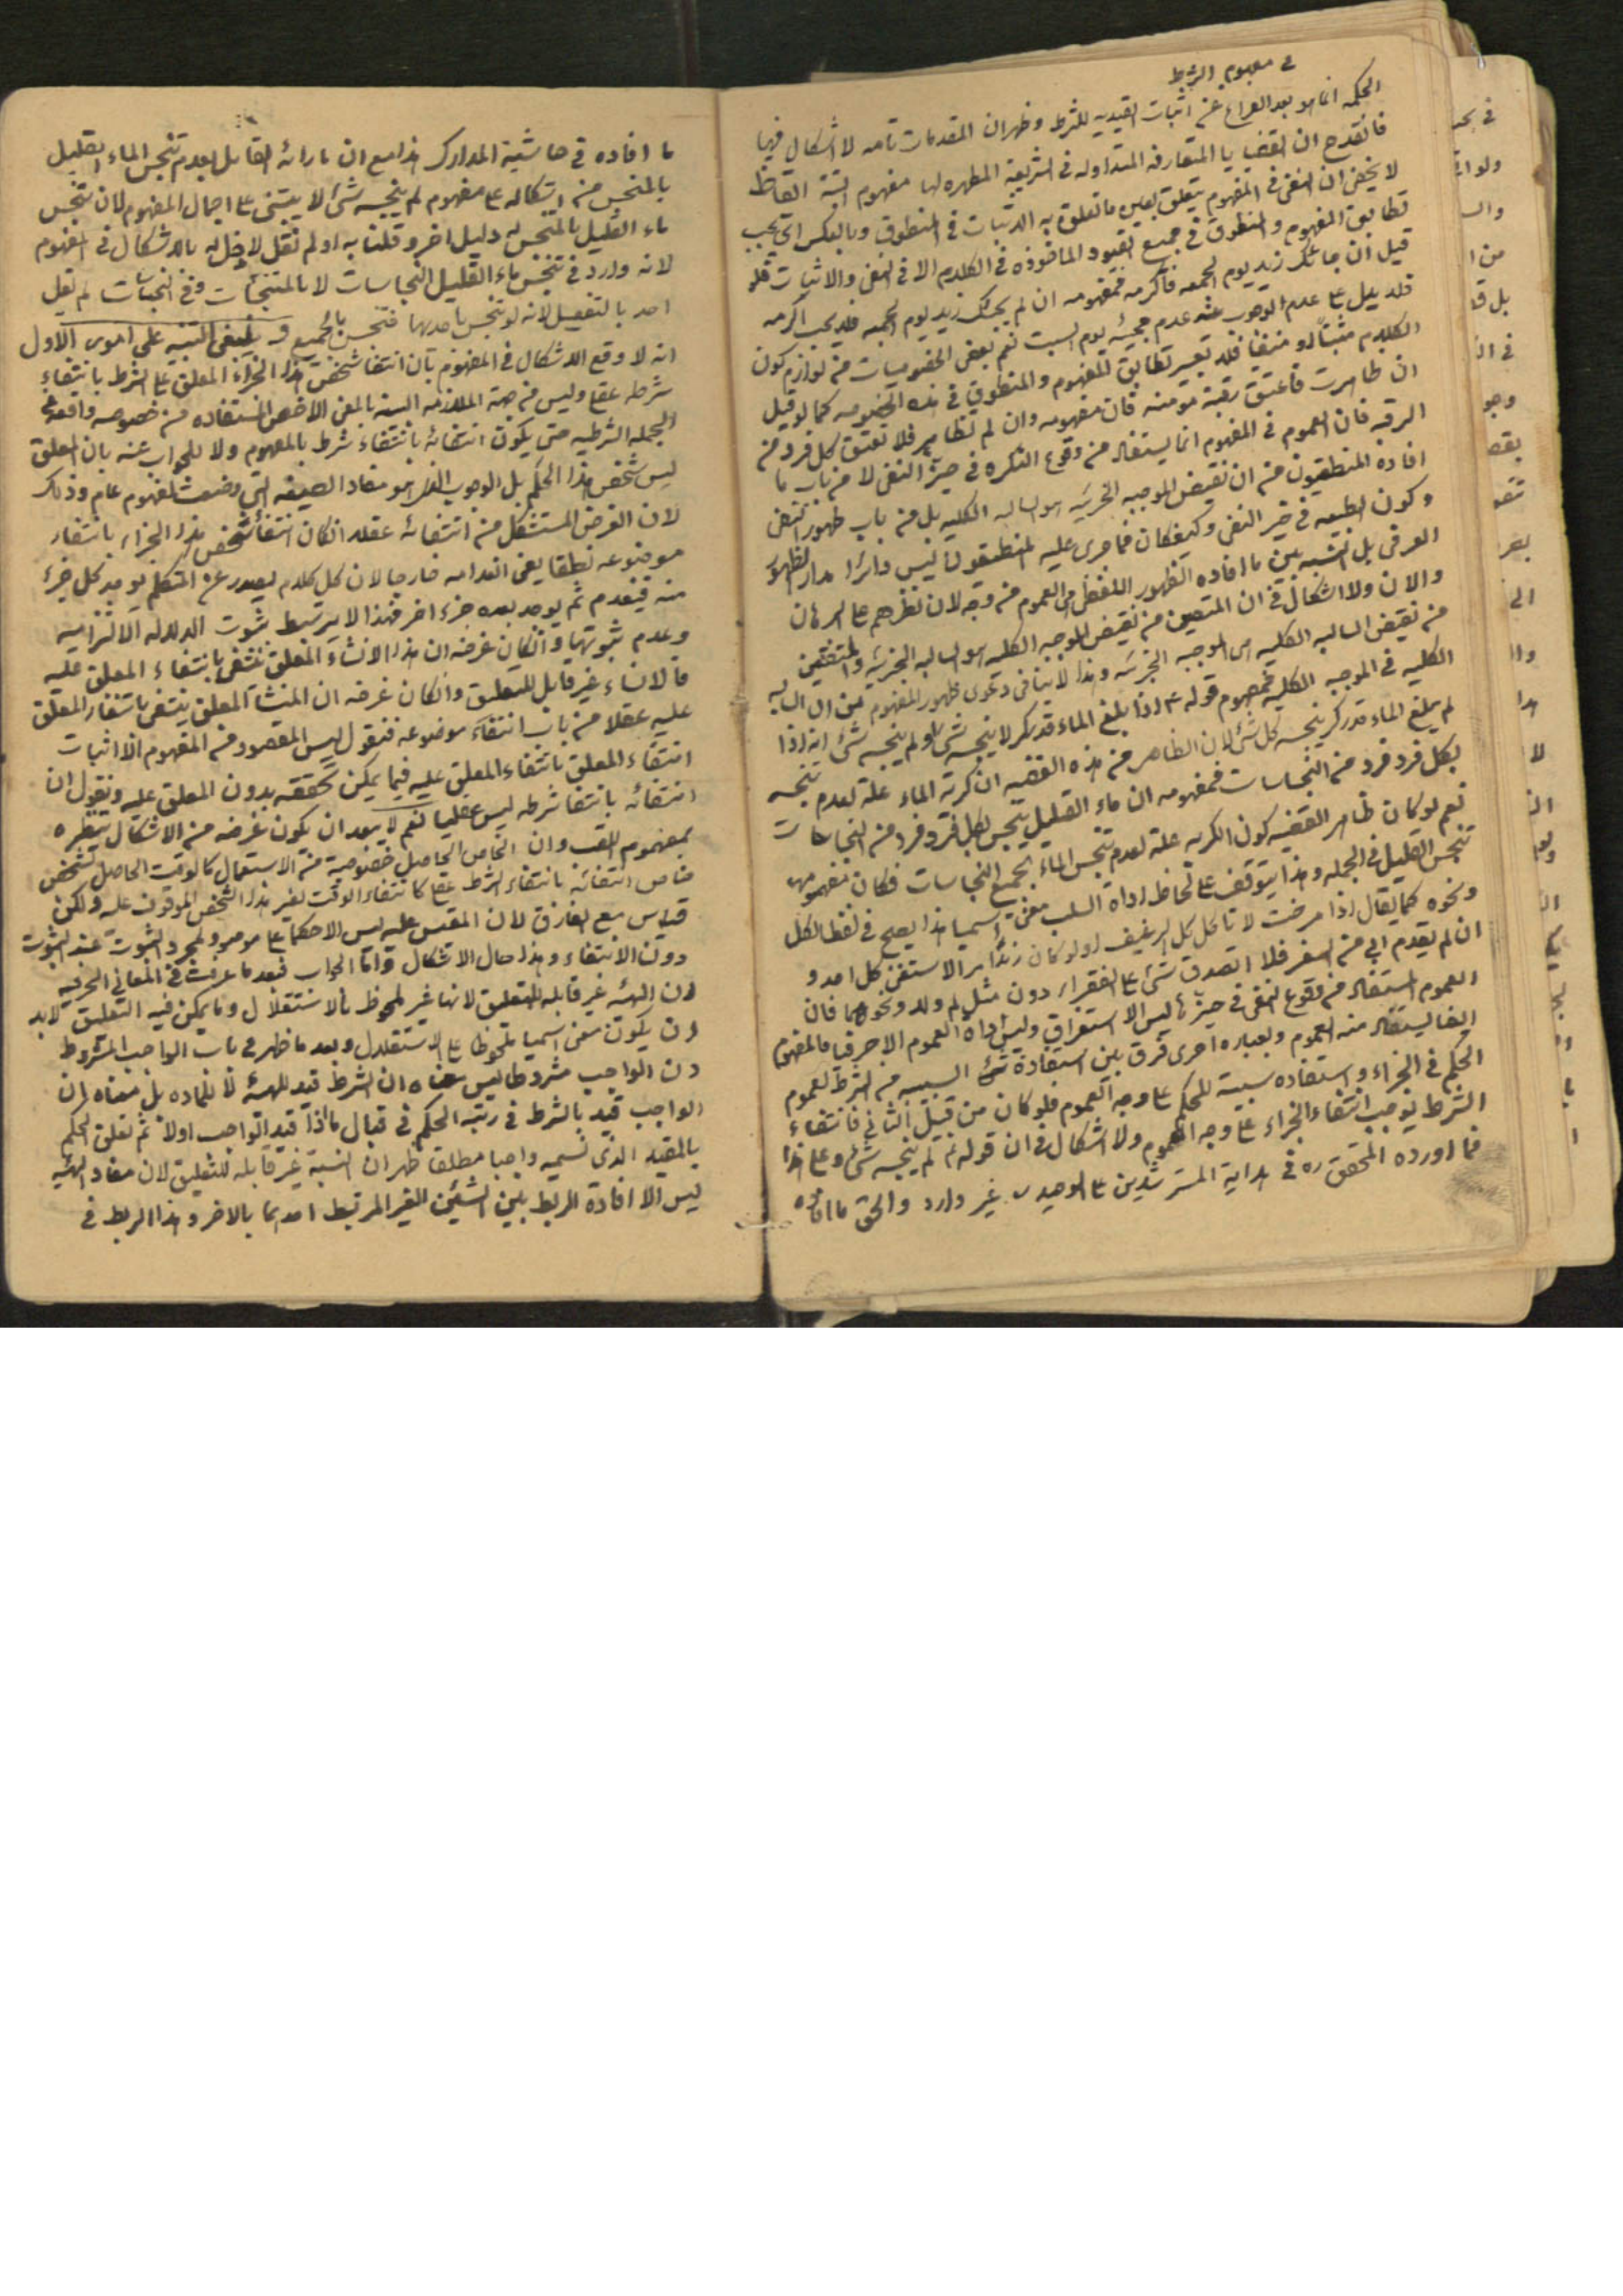 في مفهوم الشرط
الحكمة انما هو بعد الفراغ عن اثبات القيدية للشرط وظهر ان المقدمات تامه لا اشكال فيها
فانقدح ان القضايا المتعارفه المتداوله في الشريعة المطهره لها مفهوم البتة
لا يخفى ان النفي في المفهوم يتعلق بعين ما تعلق به الاثبات في المنطوق وبالعكس اي يجب
تطابق المفهوم والمنطوق في جميع القيود الماخوذه في الكلام الا في النفي والاثبات فلو
قيل ان جائك زيد يوم الجمعه فاكرمه فمفهومه ان لم يجئك زيد يوم الجمعه فلا يجب اكرامه
فلا يدل على عدم الوجوب عند عدم مجيئه يوم السبت نعم بعض الخصوصيات من لوازم كون
الكلام مثبتا او منفيا فلا تعتبر تطابق المفهوم والمنطوق في هذه الخصوصيه كما لو قيل
ان ظاهرت فاعتق رقبة مومنه فان مفهومه وان لم تظاهر فلا تعتق كل فرد من
الرقبه فان العموم في المفهوم انما يستفاد من وقوع النكره في حيز النفي لا من باب ما
افاده المنطقيون من ان نقيض الموجبه الجزئيه هو السالبه الكليه بل من باب ظهور النفي
وكون الطبيعه في حيز النفي وكيفكان فما جرى عليه المنطقيون ليس دائرا مدار الظهور
العرفي بل النسبه بين ما افاده الظهور اللفظي العموم من وجه لان نظرهم على البرهان
والان ولا اشكال في ان المتعين من نقيض الموجبه الكليه هو السالبه الجزئيه والمتيقن
من نقيض السالبه الكليه هي الموجبه الجزئيه وهذا لا ينافي دعوى ظهور المفهوم من السالبه
الكليه في الموجبه الكليه فمفهوم قوله ع اذا بلغ الماء قدر كر لا ينجسه شئ او لم ينجسه شئ انه اذا
لم يبلغ الماء قدر كر ينجسه كل شئ لان الظاهر من هذه القضيه ان كرية الماء علة لعدم تنجسه
بكل فرد فرد من النجاسات فمفهومه ان ماء القليل يتنجس بكل فرد فرد من النجاسات
نعم لو كان ظاهر القضيه كون الكريه علة لعدم تنجس الماء بجميع النجاسات فكان مفهومها
تنجس القليل في الجمله وهذا يتوقف على لحاظ اداة السلب معنى اسميا هذا يصح في لفظ الكل
ونحوه كما يقال اذا مرضت لا تاكل كل الرغيف
ان لم يقدم ابي من السفر فلا اتصدق شئ على الفقراء دون مثل لم ولا ونحوهما فان
العموم المستفاد من وقوع النفي في حيز ليس الا استغراقي وليس اداة العموم الا حرفيا فالمفهوم
ايضا يستفاد منه العموم وبعباره اخرى فرق بين استفادة السببيه من الشرط لعموم
الحكم في الجزاء واستفاده سببية للحكم على وجه العموم فلو كان من قبيل الثاني فانتفاء
الشرط يوجب انتفاء الجزاء على وجه العموم ولا اشكال في ان قوله ع لم ينجسه شئ وعلى هذا
فما اورده المحقق ره في هداية المسترشدين على الوحيد غير وارد والحق ما افاده
ما افاده في حاشية المدارك هذا مع ان ما رامه القائل بعدم تنجس الماء القليل
بالمتنجس من اشكاله على مفهوم لم ينجسه شئ لا يبتني على اجمال المفهوم لان تنجس
ماء القليل بالمتنجس له دليل اخر وقلنا به او لم نقل لا دخل له بالاشكال في المفهوم
لانه وارد في تنجس ماء القليل النجاسات لا بالمتنجسات وفي النجاسات لم يقل
احد بالتفصيل لانه لو تنجس باحديها فتنجس بالجميع وينبغي التنبيه على امور الاول
انه لا وقع الاشكال في المفهوم بان انتفاء شخص هذا الجزاء المعلق على الشرط بانتفاء
شرطه عقلي وليس من جهة الملازمه البينه بالمعنى الاخص المستفاده من خصوصيه واقعه في
الجمله الشرطيه حتى يكون انتفائه بانتفاء شرط بالمفهوم ولا للجواب عنه بان المعلق
ليس شخص هذا الحكم بل الوجوب الذي هو مفاد الصيغه التي وضعت لمفهوم عام وذلك
لان الغرض المستشكل من انتفائه عقلا انكان انتفاء شخص هذا الجزاء بانتفاء
موضوعه نطقا يعني انعدامه خارجا لان كل كلام يصدر عن المتكلم يوجد كل جزء
منه فينعدم ثم يوجد بعده جزء اخر فهذا لا يرتبط ثبوت الدلاله الالتزاميه
وعدم ثبوتها وانكان غرضه ان هذا الانشاء المعلق ينتفي بانتفاء المعلق عليه
فالانشاء غير قابل للتعليق وانكان غرضه ان المنشا المعلق ينتفي بانتفاء المعلق
عليه عقلا من باب انتفاء موضوعه فنقول ليس المقصود من المفهوم الا اثبات
انتفاء المعلق بانتفاء المعلق عليه فيما يمكن تحققه بدون المعلق عليه ونقول ان
انتفائه بانتفاء شرطه ليس عقليا نعم لا يبعد ان يكون غرضه من الاشكال تنظيره
بمفهوم اللقب وان الخاص الحاصل خصوصيه من الاستعمال كالوقت الحاصل لشخص
خاص انتفائه بانتفاء الشرط عقلي كانتفاء الوقف لغير هذا الشخص الموقوف عليه ولكن
قياس مع الفارق لان المقيس عليه ليس الا حكما على موضوع ولمجرد الثبوت عند الثبوت
دون الانتفاء وهذا حال الاشكال واما الجواب فبعد ما عرفت في المعاني الحرفيه
ان الهيئه غير قابله للتعليق لانها غير ملحوظ بالاستقلال وما يمكن فيه التعليق لابد
ان يكون معنى اسميا ملحوظا على الاستقلال وبعد ما ظهر في باب الواجب المشروط
ان الواجب مشروطا ليس معناه ان الشرط قيد للهيئه لا للماده بل معناه ان
الواجب قيد بالشرط في رتبة الحكم في قبال ما اذا قيد الواجب اولا ثم تعلق الحكم
بالمقيد الذي نسميه واجبا مطلقا ظهر ان النسبة غير قابله للتعليق لان مفاد الهيئه
ليس الا افادة الربط بين الشيئين الغير المرتبط احدهما بالاخر وهذا الربط في